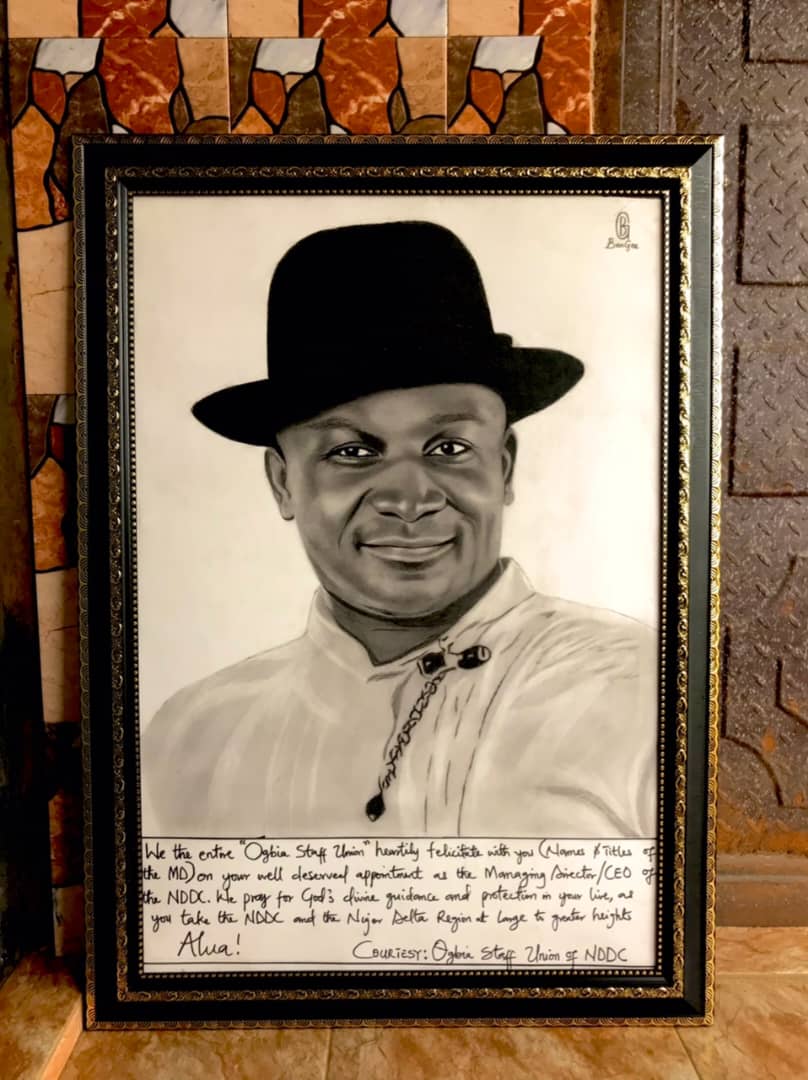 BG
BenGee
We the entire "Ogbia Staff Union" heartily felicitate with you (Names & Titles of
the MD) on your well deserved appointment as the Managing Director/CEO of
the NDDC. We pray for God's divine guidance and protection in your live, as
you take the NDDC and the Niger Delta Region at Large to greater heights
Alua!
COURTESY: Ogbia Staff Union of NDDC